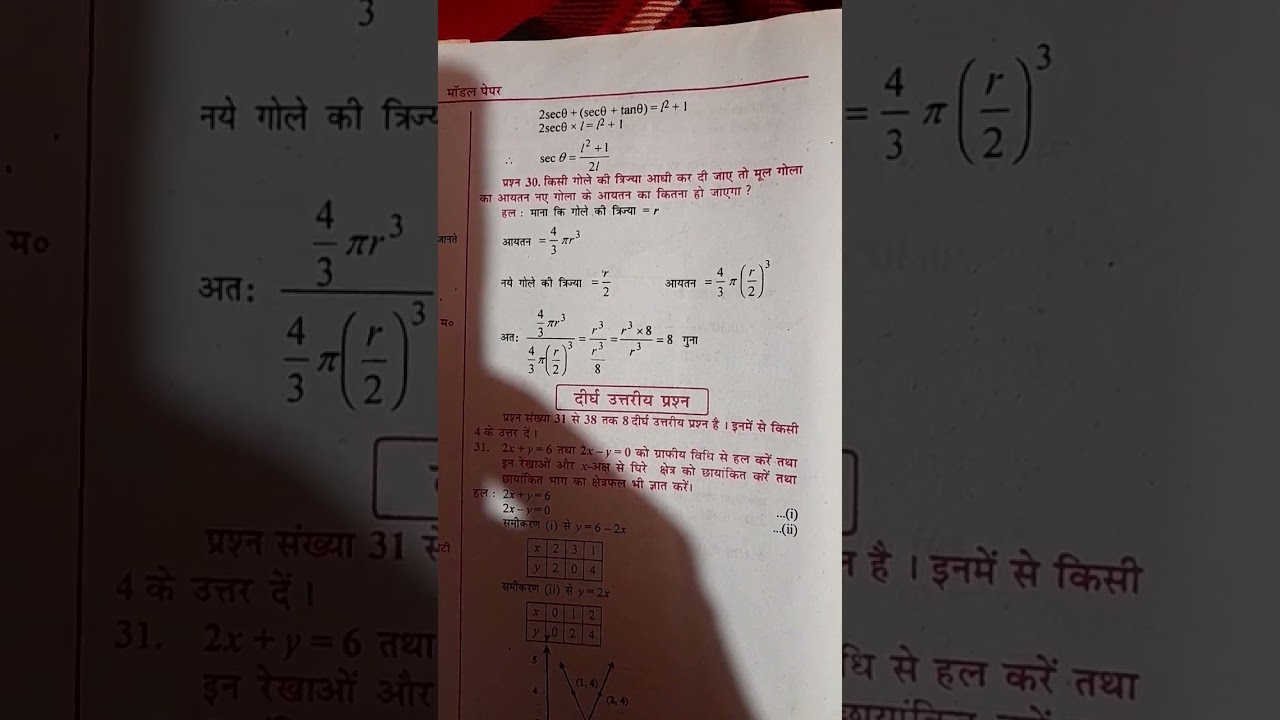 मॉडल पेपर
2secθ + (secθ + tanθ) = l² + 1
2secθ × l = l² + 1
∴ sec θ = (l² + 1)/2l
प्रश्न 30. किसी गोले की त्रिज्या आधी कर दी जाए तो मूल गोला
का आयतन नए गोला के आयतन का कितना हो जाएगा ?
हल : माना कि गोले की त्रिज्या = r
जानते
आयतन = 4/3 πr³
नये गोले की त्रिज्या = r/2 आयतन = 4/3 π(r/2)³
म०
अतः (4/3 πr³)/(4/3 π(r/2)³) = r³/(r³/8) = (r³ × 8)/r³ = 8 गुना
दीर्घ उत्तरीय प्रश्न
प्रश्न संख्या 31 से 38 तक 8 दीर्घ उत्तरीय प्रश्न है । इनमें से किसी
4 के उत्तर दें ।
31. 2x + y = 6 तथा 2x – y = 0 को ग्राफीय विधि से हल करें तथा
इन रेखाओं और x-अक्ष से घिरे क्षेत्र को छायांकित करें तथा
छायांकित भाग का क्षेत्रफल भी ज्ञात करें।
हल : 2x + y = 6 ...(i)
2x – y = 0 ...(ii)
समीकरण (i) से y = 6 – 2x
x 2 3 1
y 2 0 4
समीकरण (ii) से y = 2x
x 0 1 2
y 0 2 4
y
5
4
(1, 4)
(2, 4)
नये गोले की त्रिज्य
म०
अतः (4/3 πr³)/(4/3 π(r/2)³)
प्रश्न संख्या 31 से
4 के उत्तर दें ।
31. 2x + y = 6 तथा
इन रेखाओं और
= 4/3 π (r/2)³
है । इनमें से किसी
से हल करें तथा